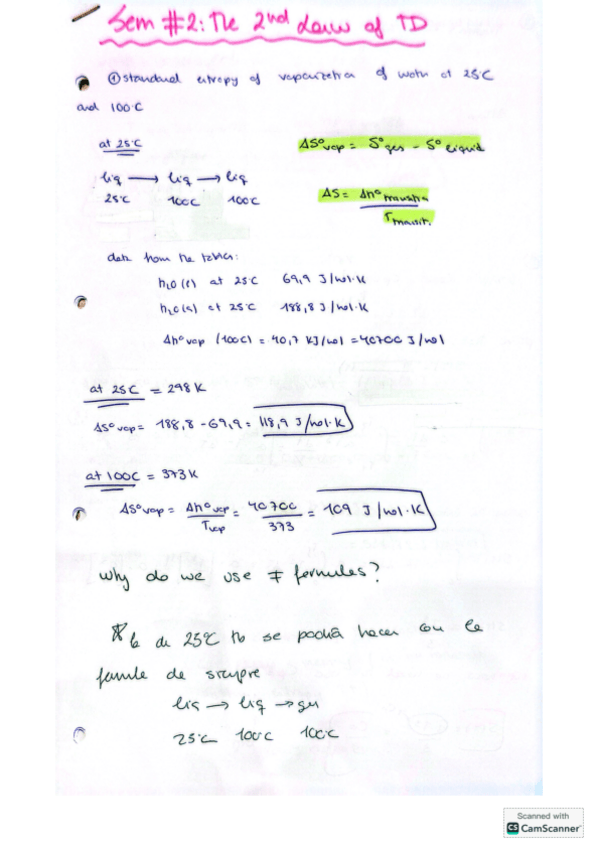 Sem #2: The 2nd Law of TD
① standard entropy of vaporization of water at 25°C
and 100°C
at 25°C
ΔS°vap = S°gas - S°liquid
liq → liq → liq
25°C 100°C 100°C
ΔS = ΔH°transition / Ttransit.
data from the tables:
H2O(l) at 25°C 69,9 J/mol·K
H2O(g) at 25°C 188,8 J/mol·K
ΔH°vap (100°C) = 40,7 KJ/mol = 40700 J/mol
at 25C = 298K
ΔS°vap = 188,8 - 69,9 = 118,9 J/mol·K
at 100C = 373K
ΔS°vap = ΔH°vap / Tvap = 40700 / 373 = 109 J/mol·K
why do we use ≠ formules?
* la de 25°C no se podría hacer con la
formula de siempre
liq → liq → gas
25°C 100°C 100°C
Scanned with
CS CamScanner